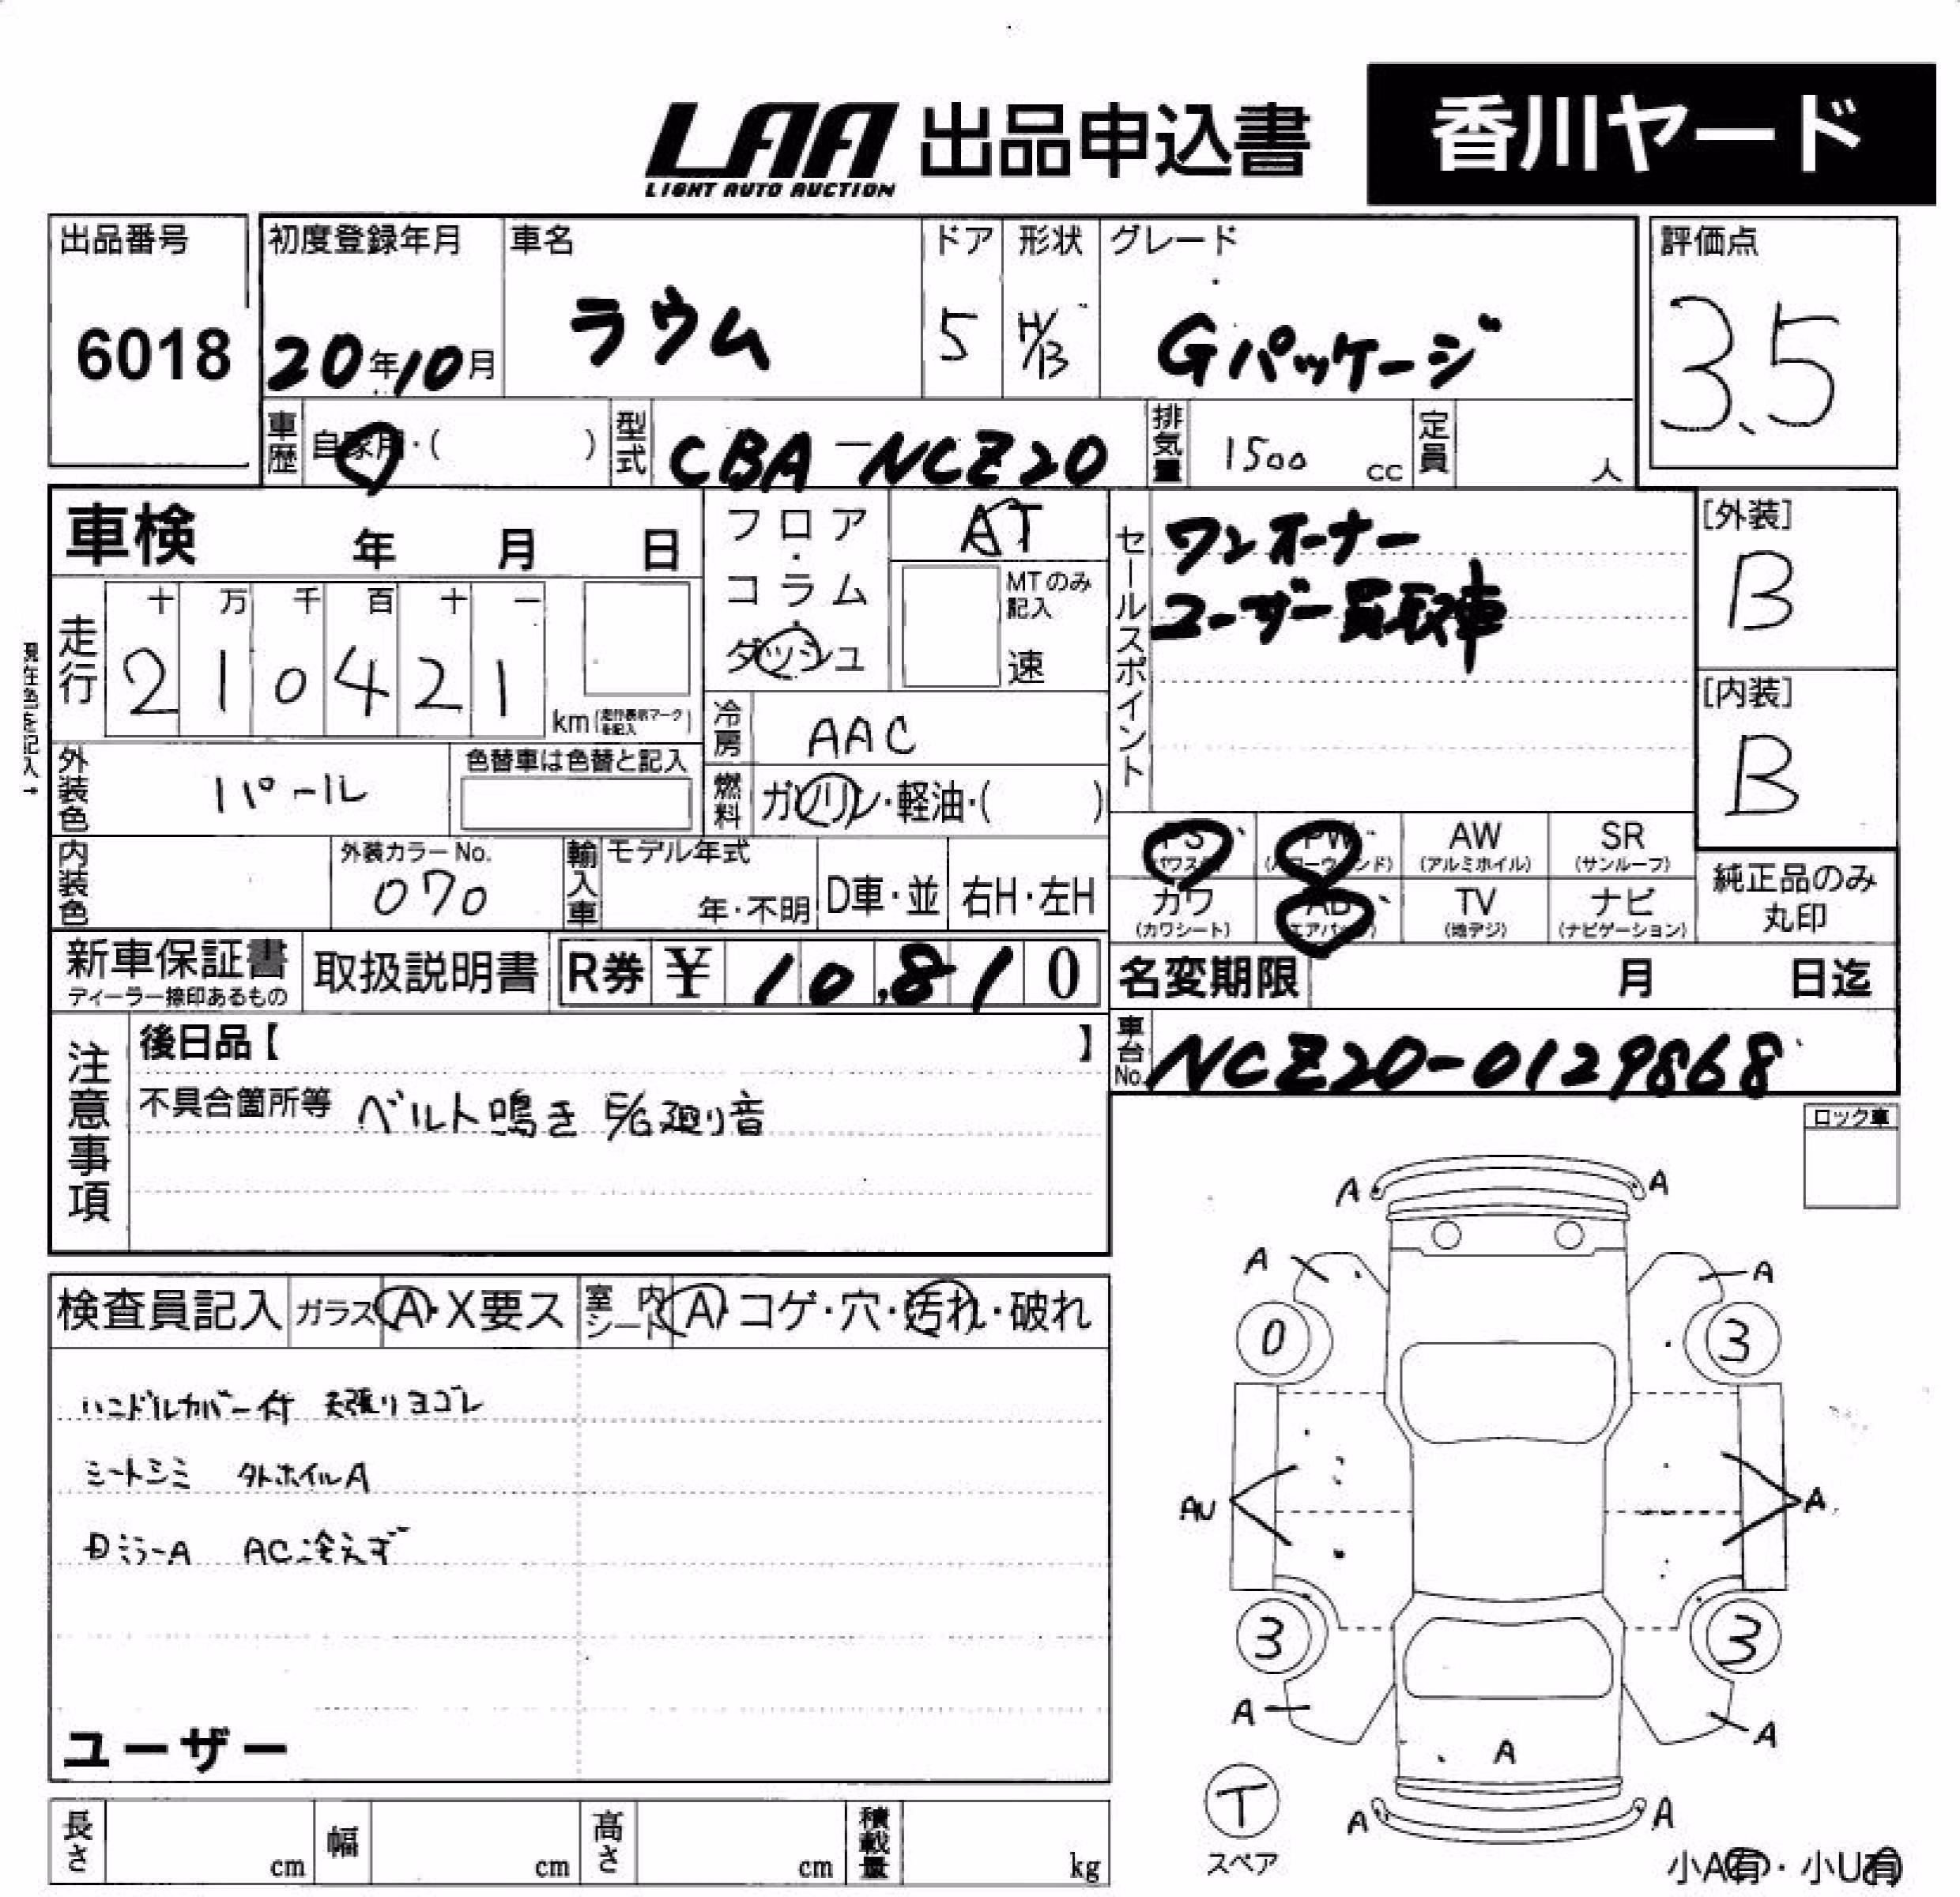 LAA 出品申込書 香川ヤード
LIGHT AUTO AUCTION
出品番号 初度登録年月 車名 ドア 形状 グレード 評価点
6018 20年10月 ラウム 5 H/B Gパッケージ 3.5
車歴 自家用・( ) 型式 CBA-NCZ20 排気量 1500 cc 定員 人
車検 年 月 日
フロア・コラム・ダッシュ
AT
MTのみ記入
速
セールスポイント
ワンオーナー
ユーザー買取車
[外装]
B
[内装]
B
走行
十 万 千 百 十 一
2 1 0 4 2 1 km(走行表示マークを記入)
現在色を記入→
冷房 AAC
外装色 パール 色替車は色替と記入
燃料 ガソリン・軽油・( )
内装色 外装カラーNo. 070
輸入車 モデル年式 年・不明 D車・並 右H・左H
PS (パワステ) PW (パワーウィンド) AW (アルミホイル) SR (サンルーフ)
カワ (カワシート) AB (エアバッグ) TV (地デジ) ナビ (ナビゲーション)
純正品のみ
丸印
新車保証書 ディーラー捺印あるもの 取扱説明書 R券 ¥ 10,810
名変期限 月 日迄
車台No. NCZ20-0129868
注意事項
後日品【 】
不具合箇所等 ベルト鳴き E/G廻り音
ロック車
検査員記入 ガラス A・X要ス 室内シート A・コゲ・穴・汚れ・破れ
ハンドルカバー付 天張りヨゴレ
シートシミ タトホイルA
ミラーA AC冷えず
ユーザー
A A
A A
0 3
AU A
3 3
A A
A
T
スペア
A A
小A有・小U有
長さ cm 幅 cm 高さ cm 積載量 kg